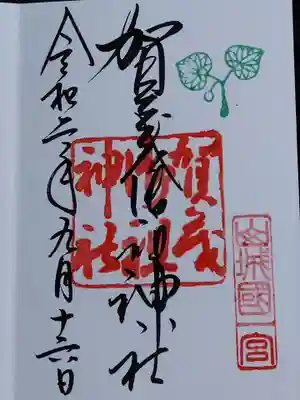 山城國
一宮
賀茂御祖神社
賀茂
御祖
神社
令和二年九月十六日